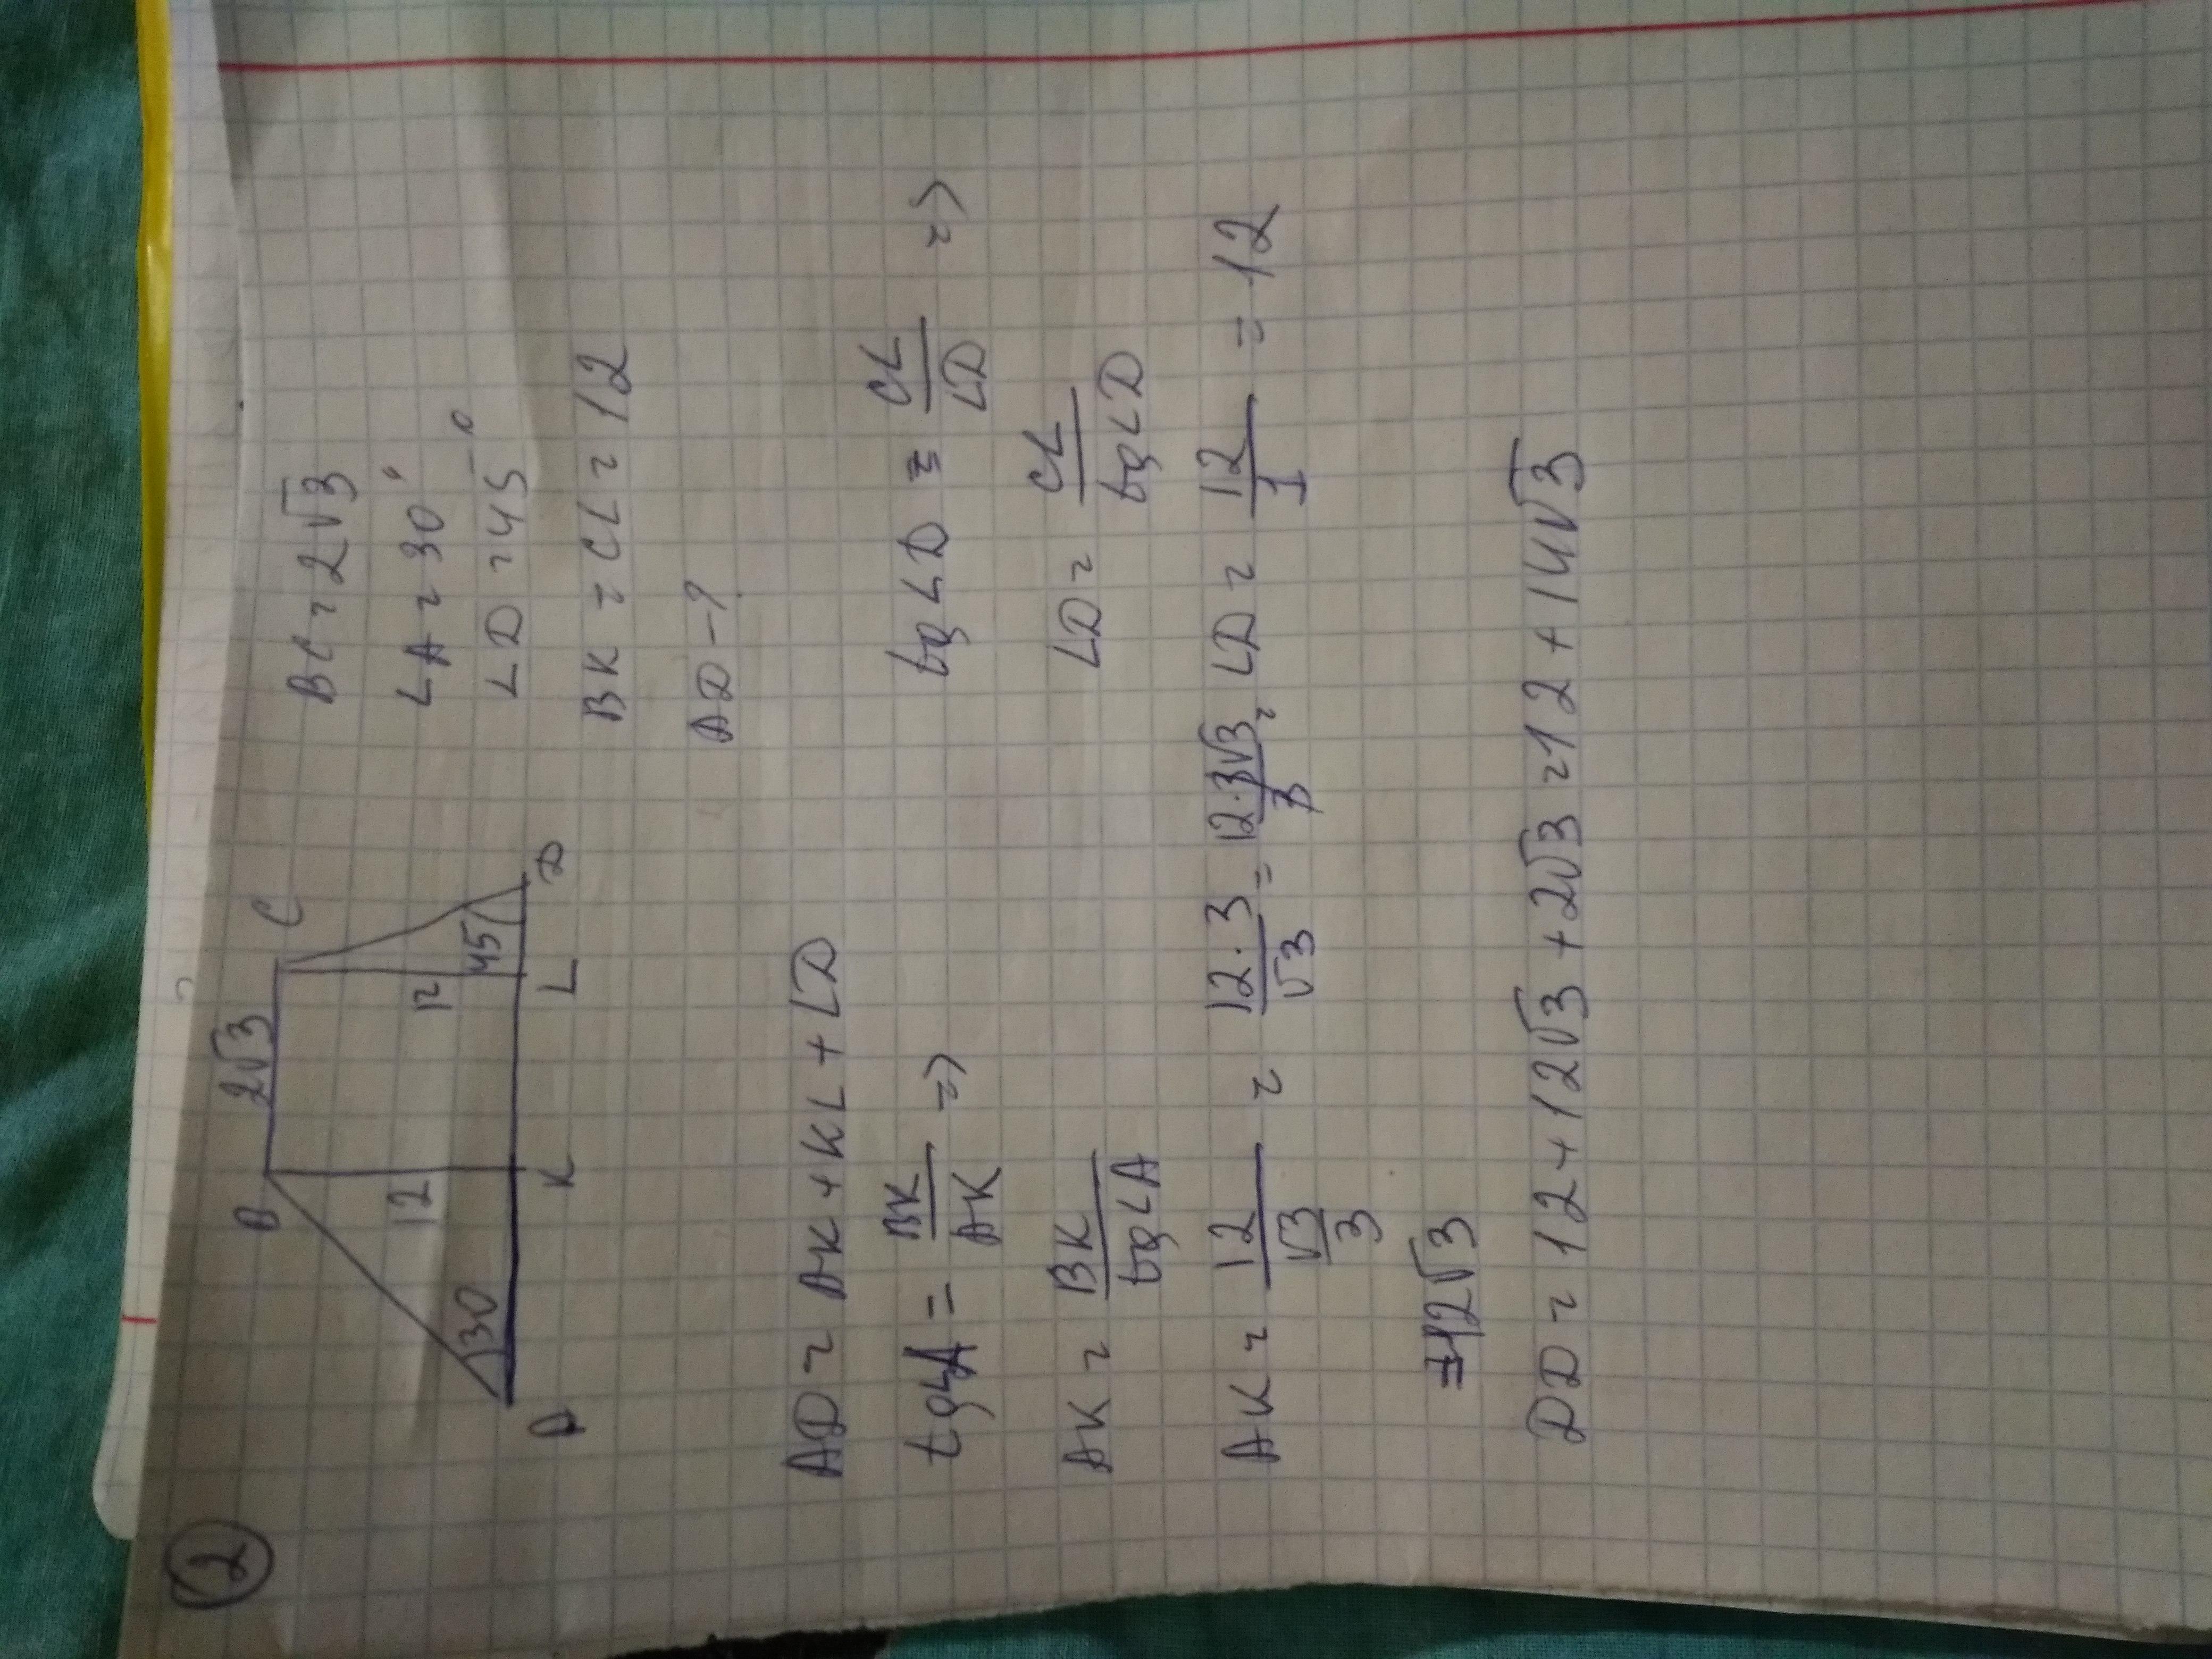 2
B 2√3 C
12 12
30 45
A K L D
BC = 2√3
∠A = 30°
∠D = 45°
BK = CL = 12
AD - ?
AD = AK + KL + LD
tg∠A = BK/AK => tg∠D = CL/LD =>
AK = BK/tg∠A LD = CL/tg∠D
AK = 12/(√3/3) = 12·3/√3 = 12·3√3/3 = LD = 12/1 = 12
=12√3
DD = 12 + 12√3 + 2√3 = 12 + 14√3